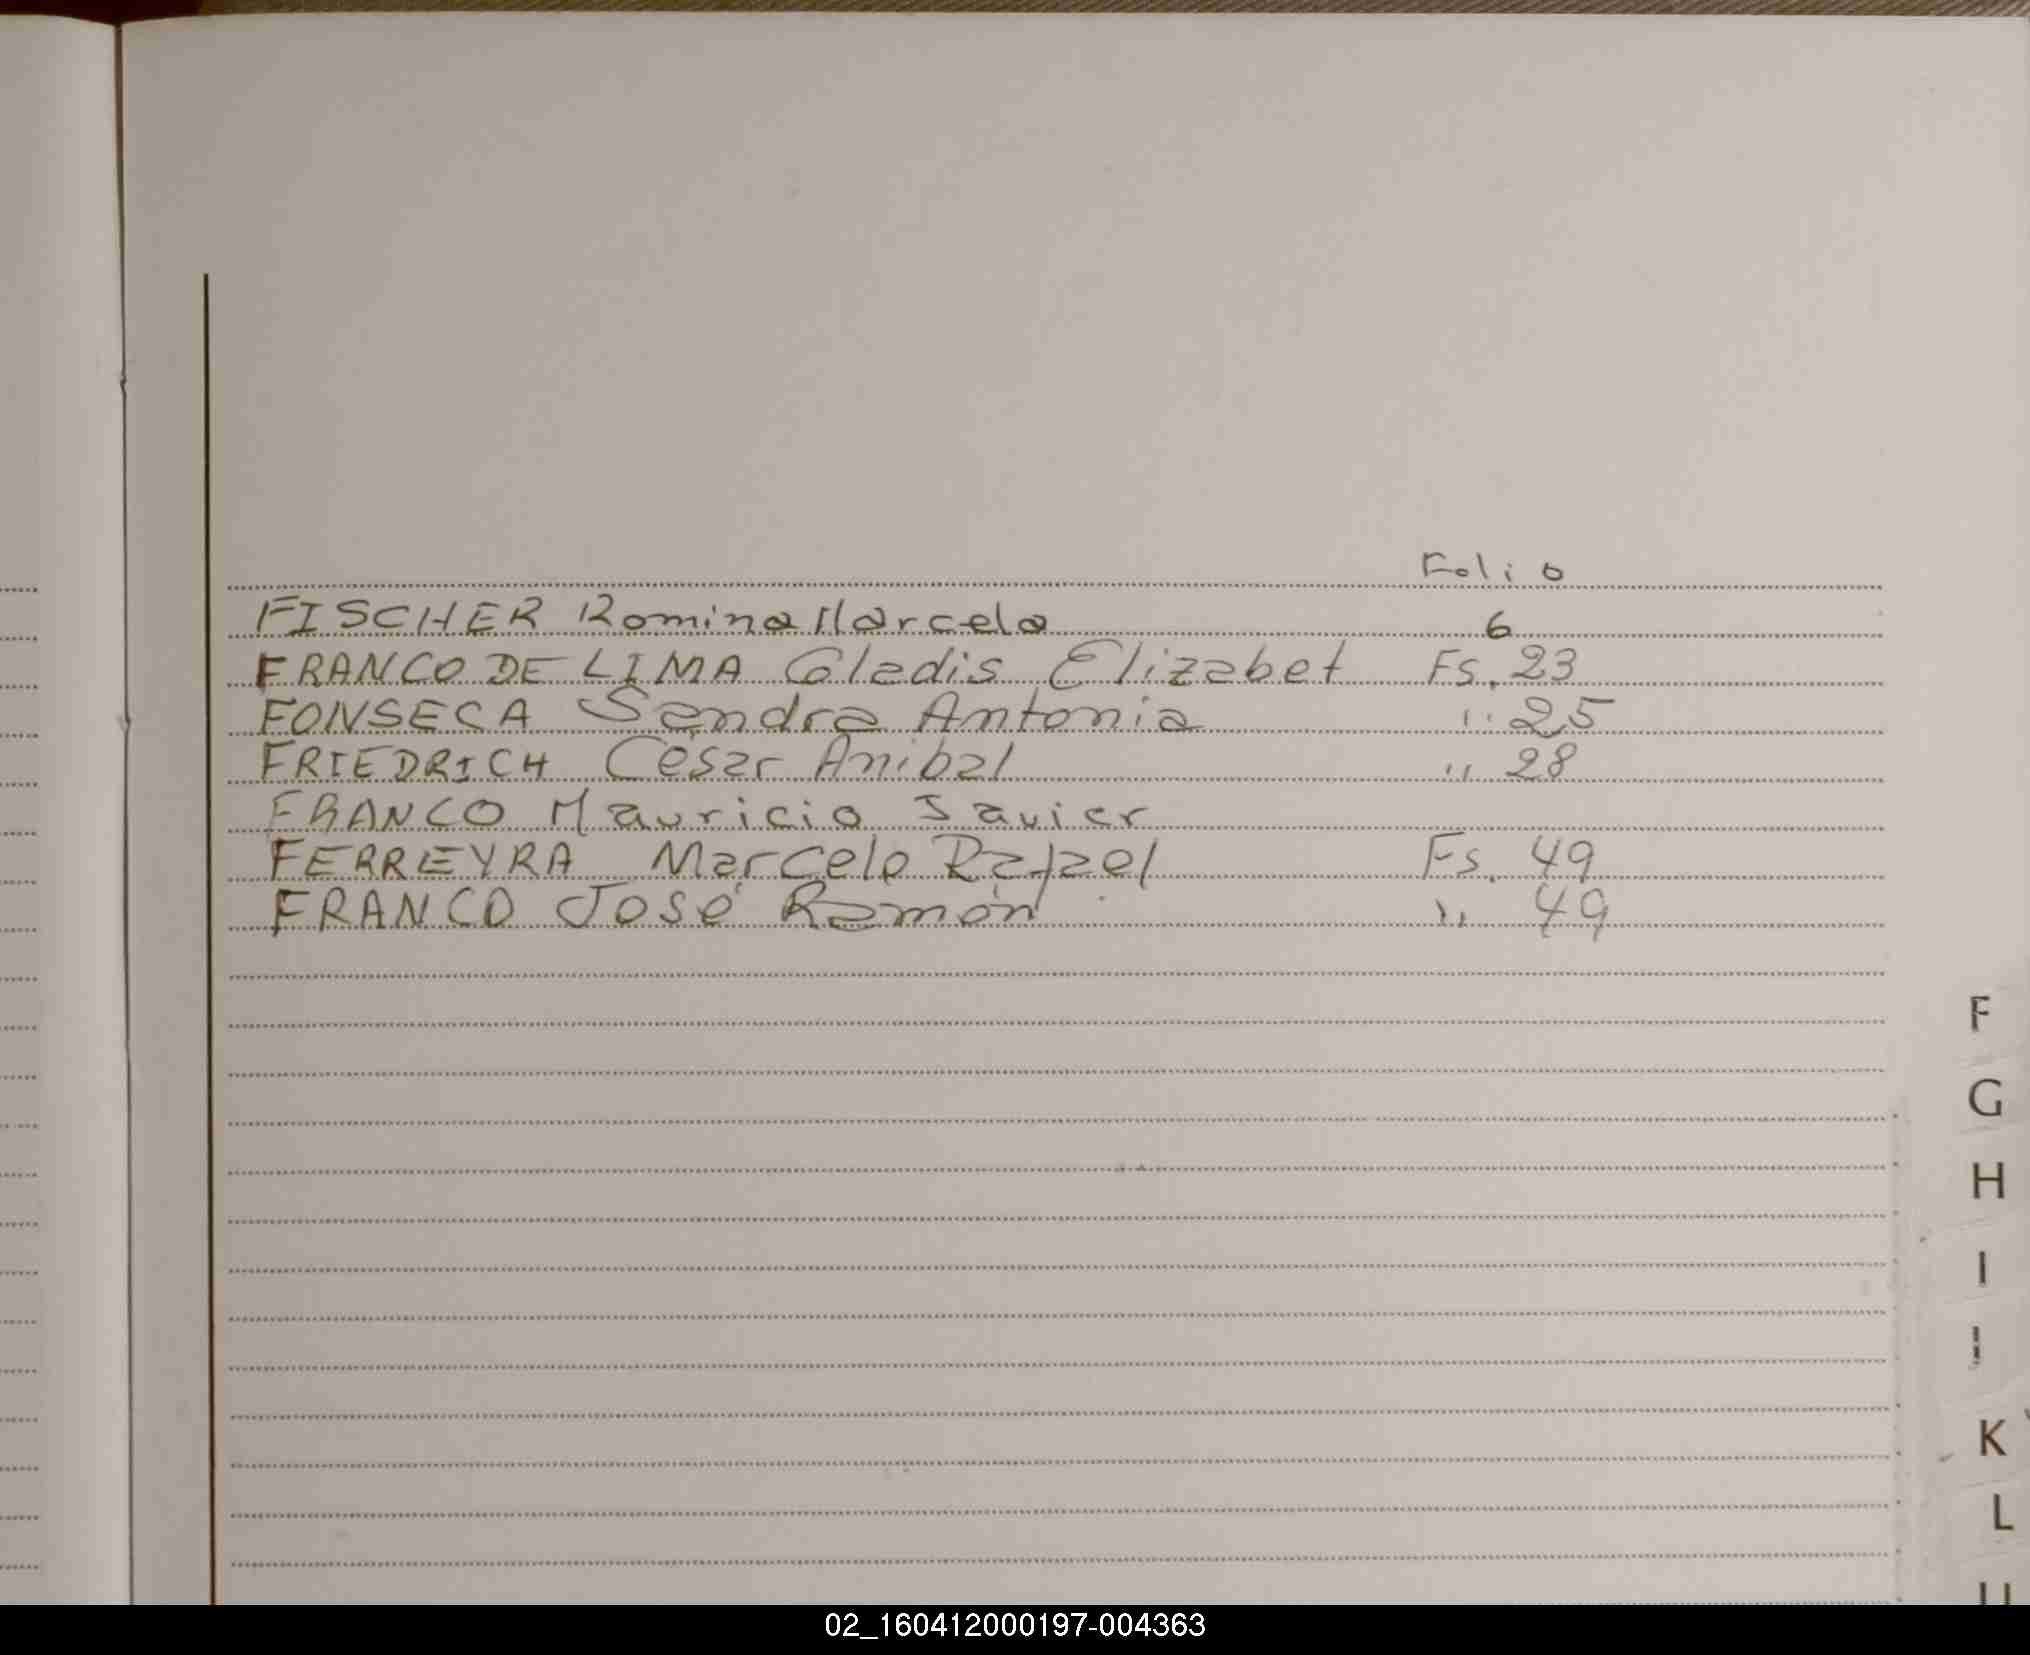 Folio
FISCHER Romina Marcela 6
FRANCO DE LIMA Gladis Elizabet Fs. 23
FONSECA Sandra Antonia " 25
FRIEDRICH César Anibal " 28
FRANCO Mauricio Javier
FERREYRA Marcelo Rafael Fs. 49
FRANCO José Ramón " 49
F
G
H
I
K
L
02_160412000197-004363